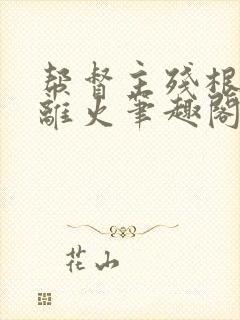 帮督主残根
离火笔趣阁
花山